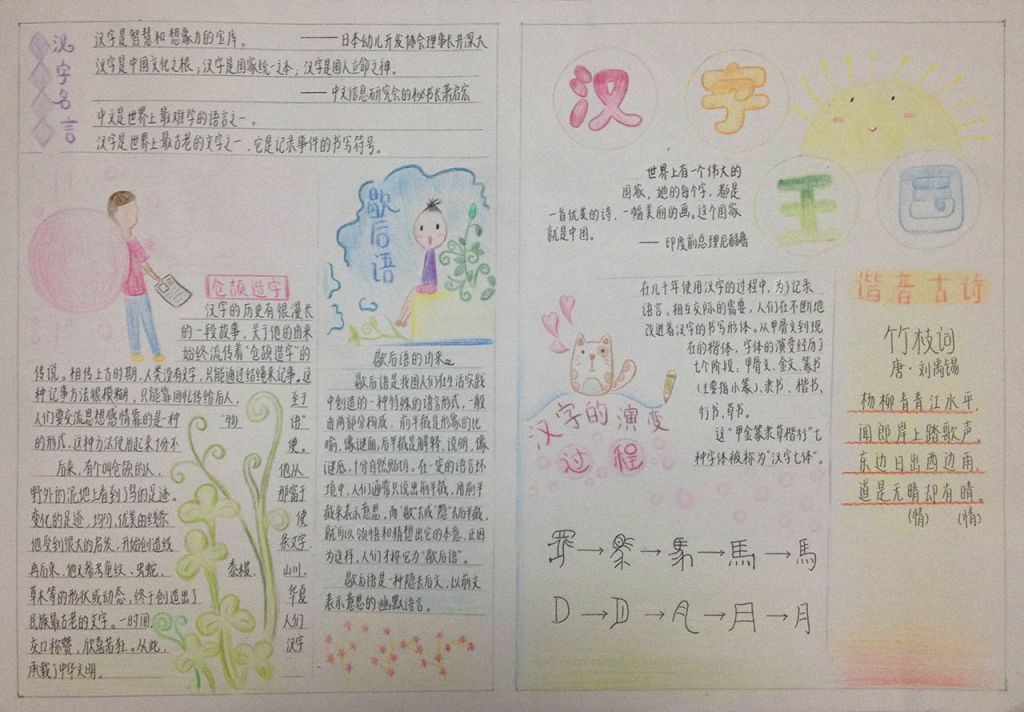 汉字名言
汉字是智慧和想象力的宝库。 ——日本幼儿开发协会理事长井深大
汉字是中国文化之根；汉字是国家统一之本；汉字是国人立命之神。
——中文信息研究会的秘书长萧启宏
中文是世界上最难学的语言之一。
汉字是世界上最古老的文字之一，它是记录事件的书写符号。
仓颉造字
汉字的历史有很漫长
的一段故事，关于他的由来
始终流传着“仓颉造字”的
传说。相传上古时期，人类没有文字，只能通过结绳来记事。这
种记事方法很模糊，只能靠回忆传给后人， 至于
人们要交流思想感情靠的是一种 “物 语”
的形式，这种方法使用起来十分不 便。
后来，有个叫仓颉的人， 他从
野外的泥地上看到了鸟的足迹。 那富于
变化的足迹，均匀，优美的线条 使
他受到很大的启发，开始创造线 条文字，
再后来，他又参考龟纹、虫蛇， 黍稷， 山川，
草木等的形状或动态，终于创造出了 华夏
民族最古老的文字。一时间， 人们
交口称赞、欣喜若狂。从此， 汉字
承载了中华文明。
歇后语
歇后语的由来
歇后语是我国人们在生活实践
中创造的一种特殊的语言形式，一般
由两部分构成，前半截是形象的比
喻，像谜面，后半截是解释，说明，像
谜底，十分自然贴切。在一定的语言环
境中，人们通常只说出前半截，用前半
截来表示意思，而“歇”去或“隐”去后半截，
就可以领悟和猜想出它的本意，正因
为这样，人们才称它为“歇后语”。
歇后语是一种隐去后文，以前文
表示意思的幽默语言。
汉字
王国
世界上有一个伟大的
国家，她的每个字，都是
一首优美的诗，一幅美丽的画。这个国家
就是中国。
——印度前总理尼赫鲁
在几千年使用汉字的过程中，为了记录
语言、相互交际的需要，人们在不断地
改进着汉字的书写形体，从甲骨文到现
在的楷体，字体的演变经历了
七个阶段：甲骨文、金文、篆书
（主要指小篆）、隶书、楷书、
行书、草书。
这“甲金篆隶草楷行”七
种字体被称为“汉字七体”。
汉字的演变
过程
→ → → 馬 → 馬
→ → → 月 → 月
谐音古诗
竹枝词
唐·刘禹锡
杨柳青青江水平，
闻郎岸上踏歌声。
东边日出西边雨，
道是无晴却有晴。
（情） （情）